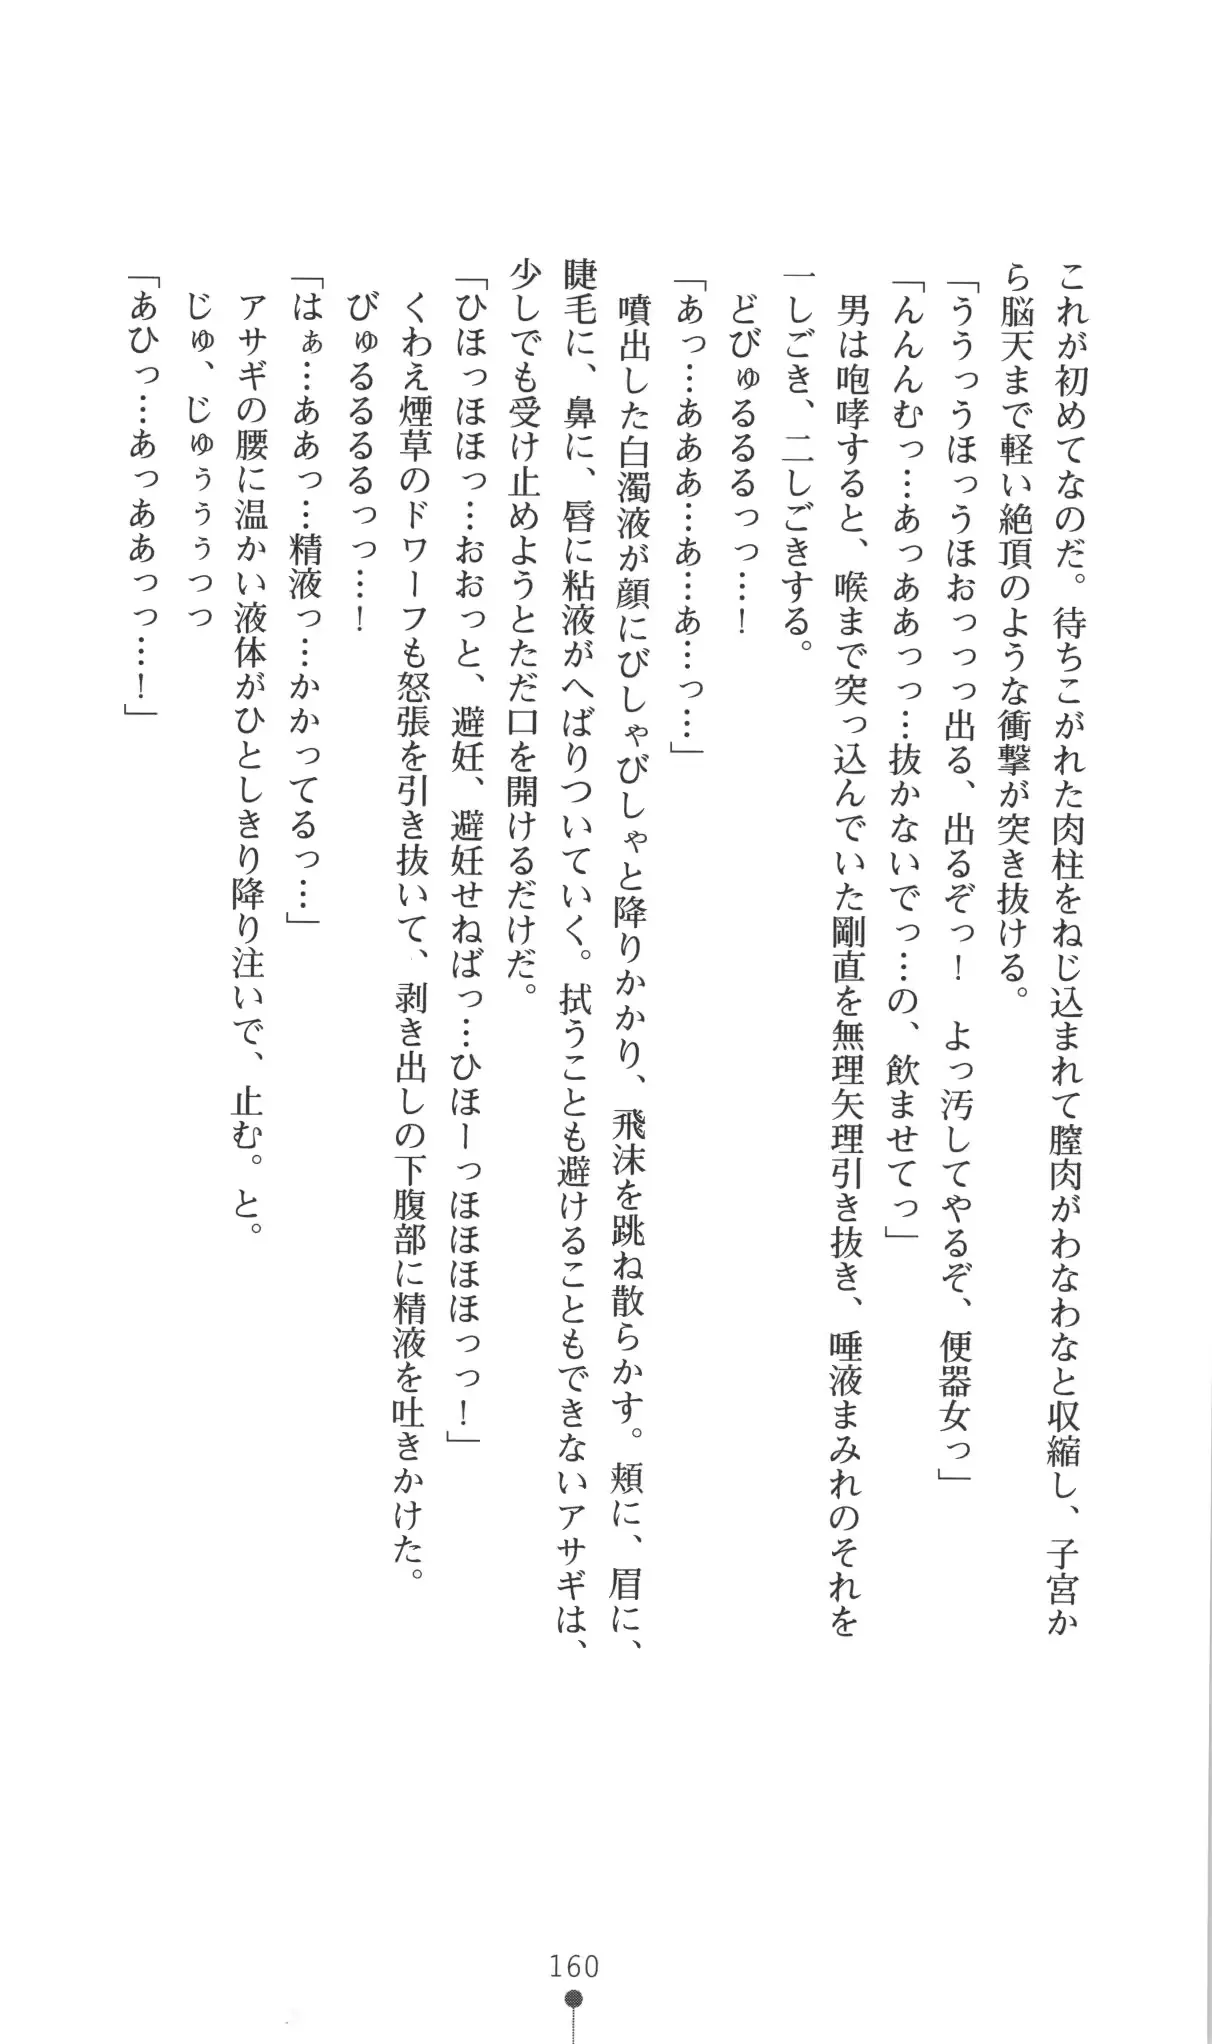 これが初めてなのだ。待ちこがれた肉柱をねじ込まれて膣肉がわなわなと収縮し、子宮か
ら脳天まで軽い絶頂のような衝撃が突き抜ける。
「ううっうほっうほおっっっ出る、出るぞっ！　よっ汚してやるぞ、便器女っ」
「んんんむっ…あっああっっ…抜かないでっ…の、飲ませてっ」
男は咆哮すると、喉まで突っ込んでいた剛直を無理矢理引き抜き、唾液まみれのそれを
一しごき、二しごきする。
どびゅるるるっっ…！
「あっ…あああ…あ…あ…っ…」
噴出した白濁液が顔にびしゃびしゃと降りかかり、飛沫を跳ね散らかす。頬に、眉に、
睫毛に、鼻に、唇に粘液がへばりついていく。拭うことも避けることもできないアサギは、
少しでも受け止めようとただ口を開けるだけだ。
「ひほっほほっ…おおっと、避妊、避妊せねばっ…ひほーっほほほほっっ！」
くわえ煙草のドワーフも怒張を引き抜いて、剥き出しの下腹部に精液を吐きかけた。
びゅるるるるっっ…！
「はぁ…ああっ…精液っ…かかってるっ…」
アサギの腰に温かい液体がひとしきり降り注いで、止む。と。
じゅ、じゅぅぅぅっっ
「あひっ…あっああっっ…！」
160